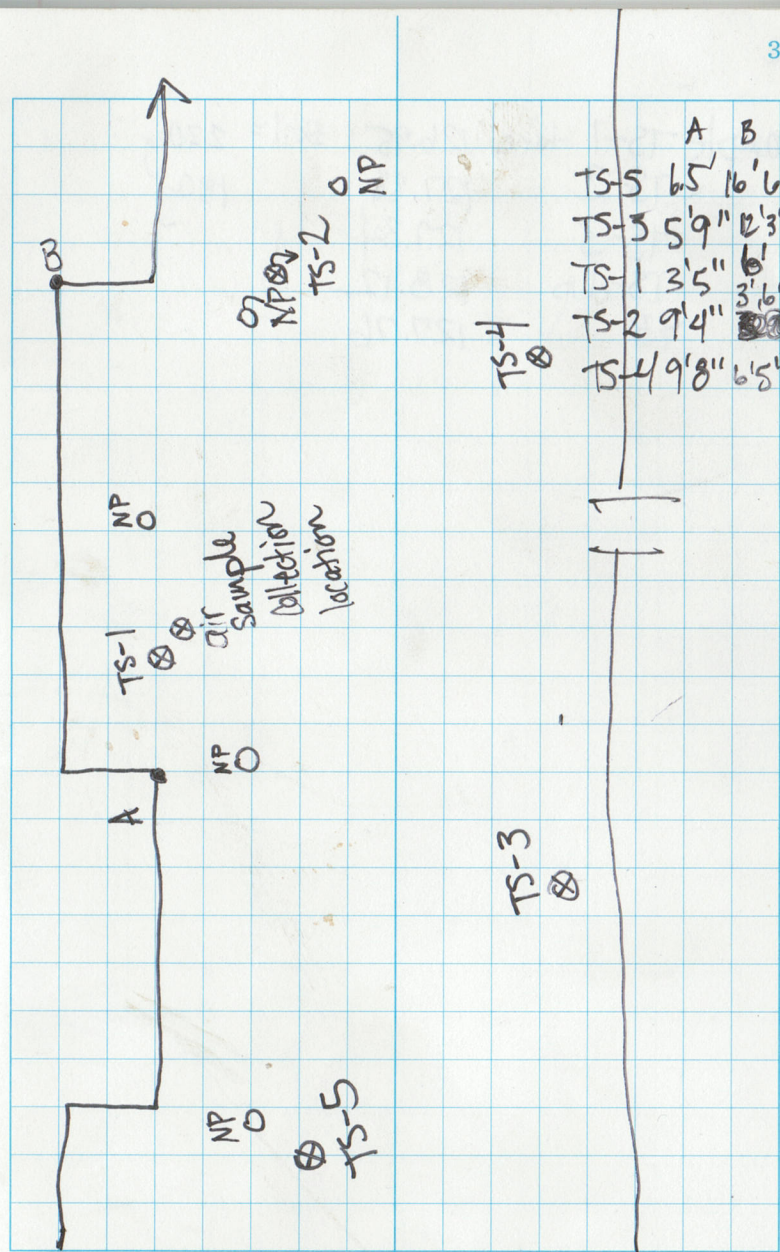 3
A B
TS-5 6.5' 16'6
TS-3 5'9" 12'3
TS-1 3'5" 6'
3'6"
TS-2 9'4"
TS-4 9'8" 6'5"
B
NP
NP
TS-2
TS-4
NP
air
sample
collection
location
TS-1
NP
A
TS-3
NP
TS-5